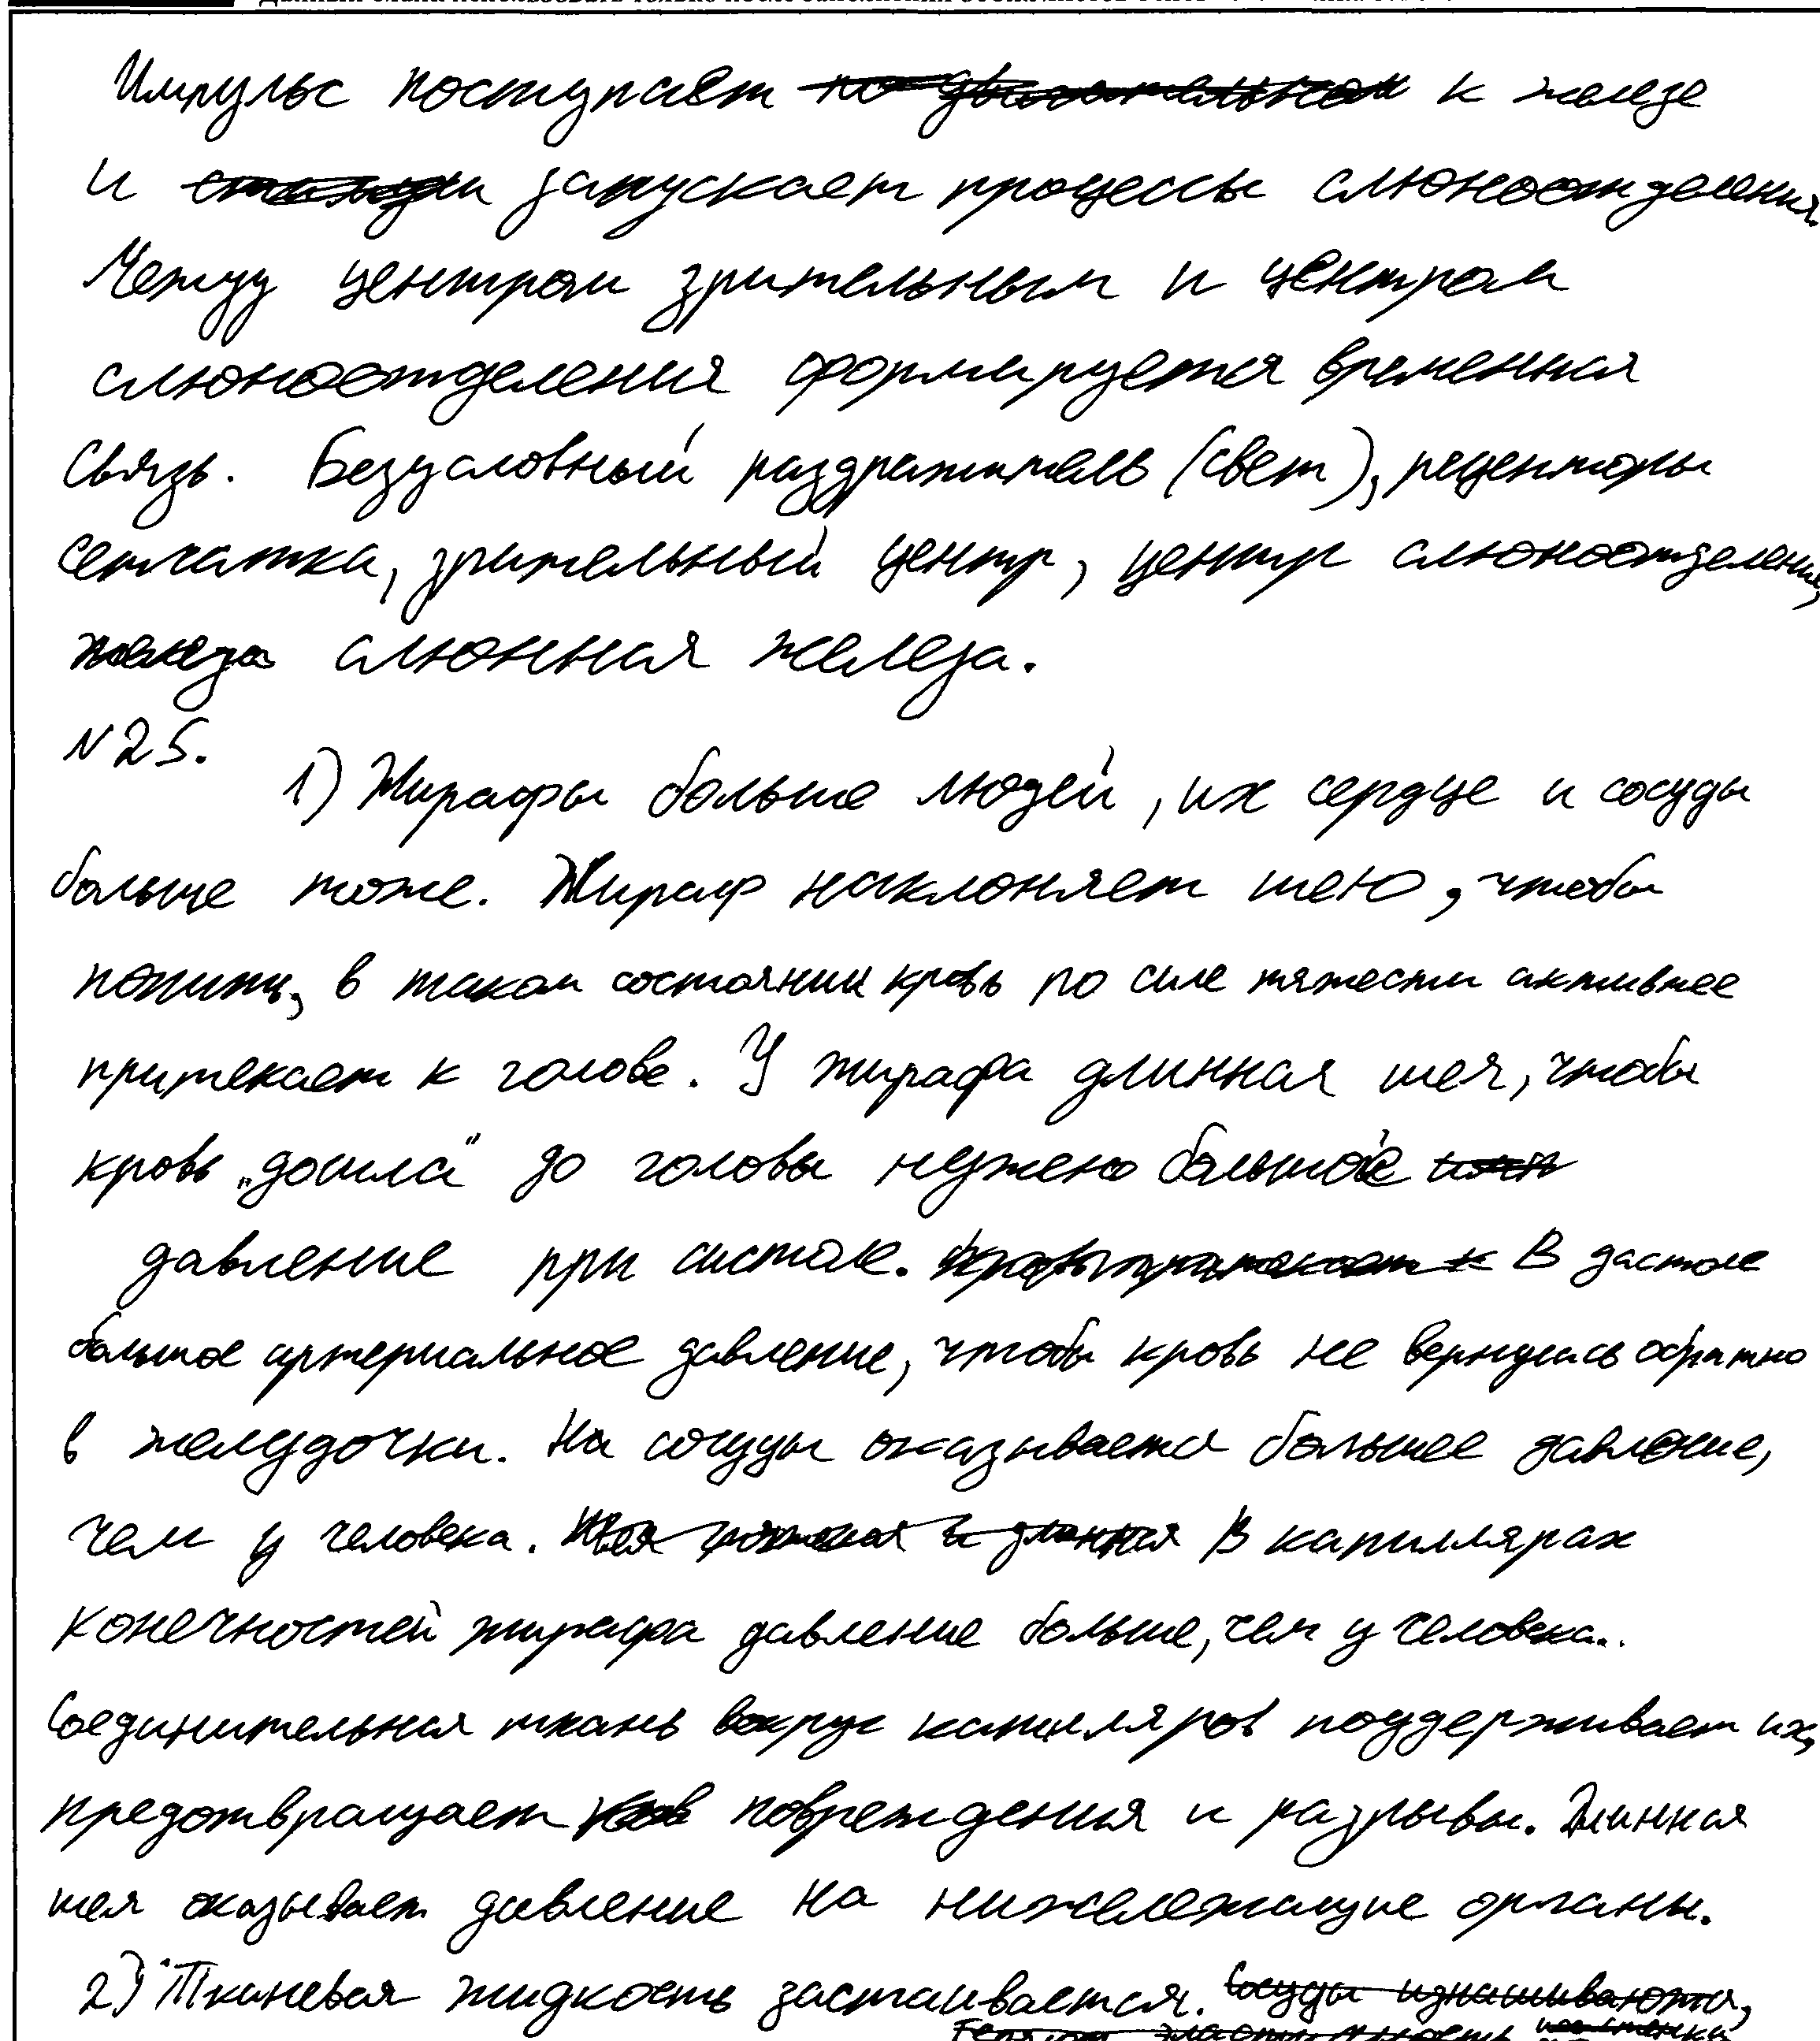 Импульс поступает к железе
и запускает процессы слюноотделения.
Между центром зрительным и центром
слюноотделения формируется временная
связь. Безусловный раздражитель (свет), рецепторы
сетчатка, зрительный центр, центр слюноотделения,
железа слюнная железа.
N25.
1) Жирафы больше людей, их сердце и сосуды
больше тоже. Жираф наклоняет шею, чтобы
попить, в таком состоянии кровь по силе тяжести активнее
притекает к голове. У жирафа длинная шея, чтобы
кровь „дошла" до головы нужено большое
давление при систоле. В дастоле
большое артериальное давление, чтобы кровь не вернулась обратно
в желудочки. На сосуды оказывается большее давление,
чем у человека. В капиллярах
конечностей жирафа давление больше, чем у человека..
Соединительная ткань вокруг капилляров поддерживает их,
предотвращает повреждения и разрывы. Длинная
шея оказывает давление на нижележащие органы.
2) Тканевая жидкость застаивается. Сосуды изнашиваются,